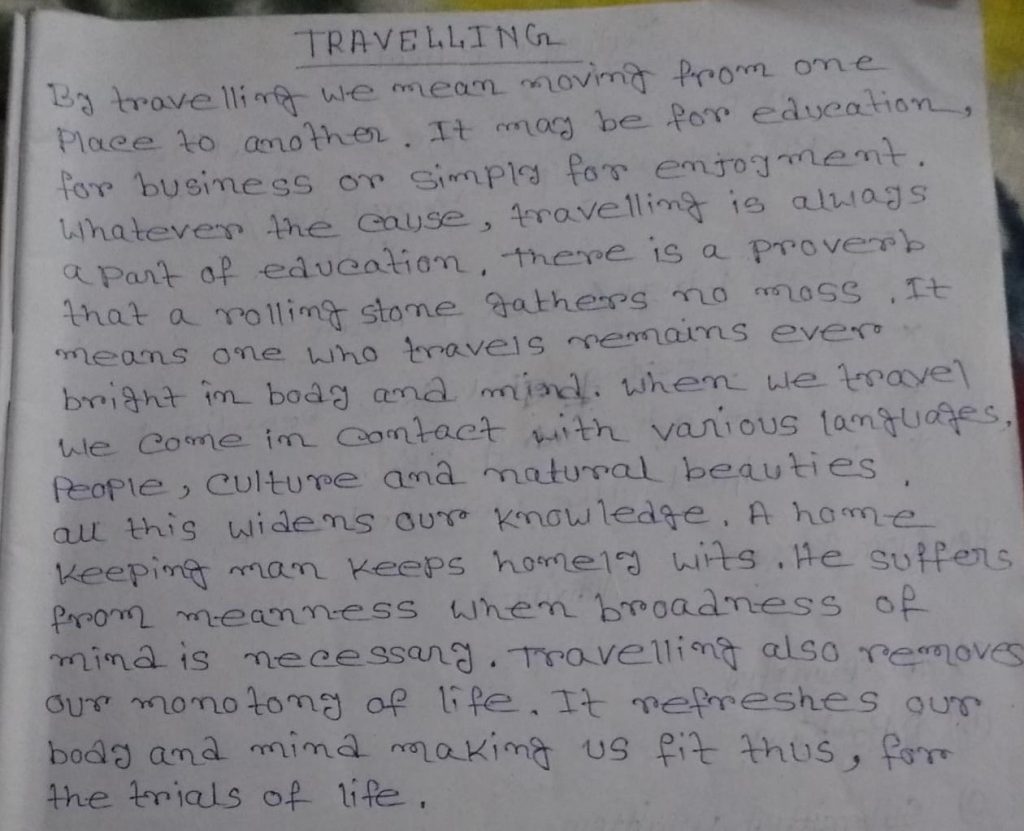 TRAVELLING
By travelling we mean moving from one
Place to another. It may be for education,
for business or simply for enjoyment.
Whatever the cause, travelling is always
a part of education. there is a proverb
that a rolling stone gathers no moss. It
means one who travels remains ever
bright in body and mind. when we travel
we come in contact with various languages,
People, culture and natural beauties.
all this widens our knowledge. A home
keeping man keeps homely wits. He suffers
from meanness when broadness of
mind is necessary. Travelling also removes
our monotony of life. It refreshes our
body and mind making us fit thus, for
the trials of life.